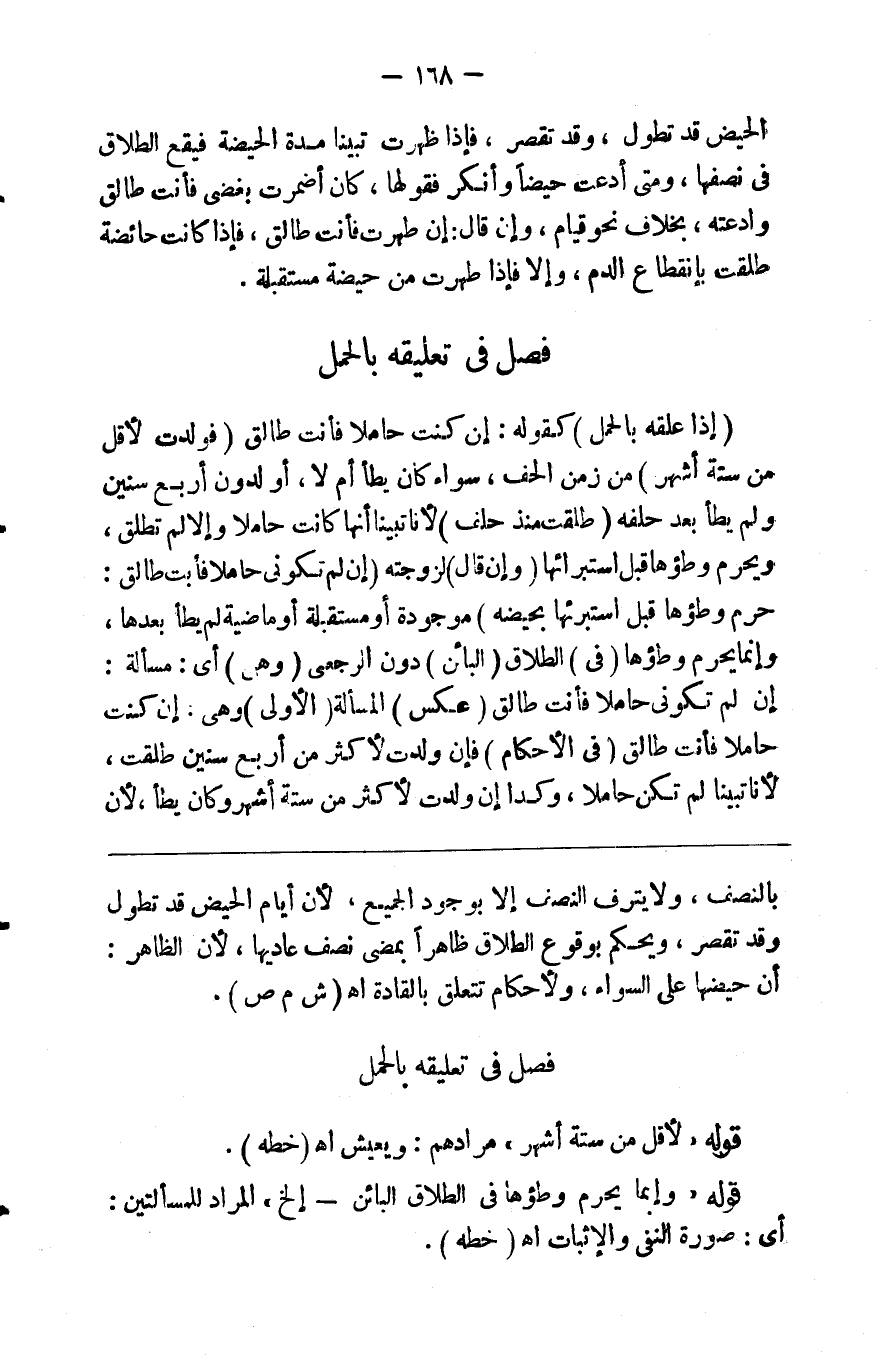 — ١٦٨ —
الحيض قد تطول ، وقد تقصر ، فإذا ظهرت تبينا مدة الحيضة فيقع الطلاق
فى نصفها ، ومتى أدعت حيضاً وأنكر فقولها ، كان أضمرت بغضى فأنت طالق
وادعته ، بخلاف نحو قيام ، وإن قال: إن طهرت فأنت طالق ، فإذا كانت حائضة
طلقت بإنقطاع الدم ، وإلا فإذا طهرت من حيضة مستقبلة .
فصل فى تعليقه بالحمل
( إذا علقه بالحمل ) كقوله : إن كنت حاملا فأنت طالق ( فولدت لأقل
من ستة أشهر ) من زمن الحف ، سواء كان يطأ أم لا ، أو لدون أربع سنين
ولم يطأ بعد حلفه ( طلقت منذ حلف ) لأنا تبينا أنها كانت حاملا وإلا لم تطلق ،
ويحرم وطؤها قبل استبرائها ( وإن قال ) لزوجته ( إن لم تكونى حاملا فأنت طالق :
حرم وطؤها قبل استبرئها بحيضه ) موجودة أو مستقبلة أو ماضية لم يطأ بعدها ،
وإنما يحرم وطؤها ( فى ) الطلاق ( البائن ) دون الرجعى ( وهى ) أى : مسألة :
إن لم تكونى حاملا فأنت طالق ( عكس ) المسألة ( الأولى ) وهى : إن كنت
حاملا فأنت طالق ( فى الأحكام ) فإن ولدت لأكثر من أربع سنين طلقت ،
لأنا تبينا لم تكن حاملا ، وكذا إن ولدت لأكثر من ستة أشهر وكان يطأ ، لأن
بالنصف ، ولا يترف النصف إلا بوجود الجميع ، لأن أيام الحيض قد تطول
وقد تقصر ، ويحكم بوقوع الطلاق ظاهراً بمضى نصف عاديها ، لأن الظاهر :
أن حيضها على السواء ، ولأحكام تتعلق بالقادة اه ( ش م ص ) .
فصل فى تعليقه بالحمل
قوله « لأقل من ستة أشهر » مرادهم : ويعيش اه ( خطه ) .
قوله « وإنما يحرم وطؤها فى الطلاق البائن — إلخ » المراد للمسألتين :
أى : صورة النفى والإثبات اه ( خطه ) .